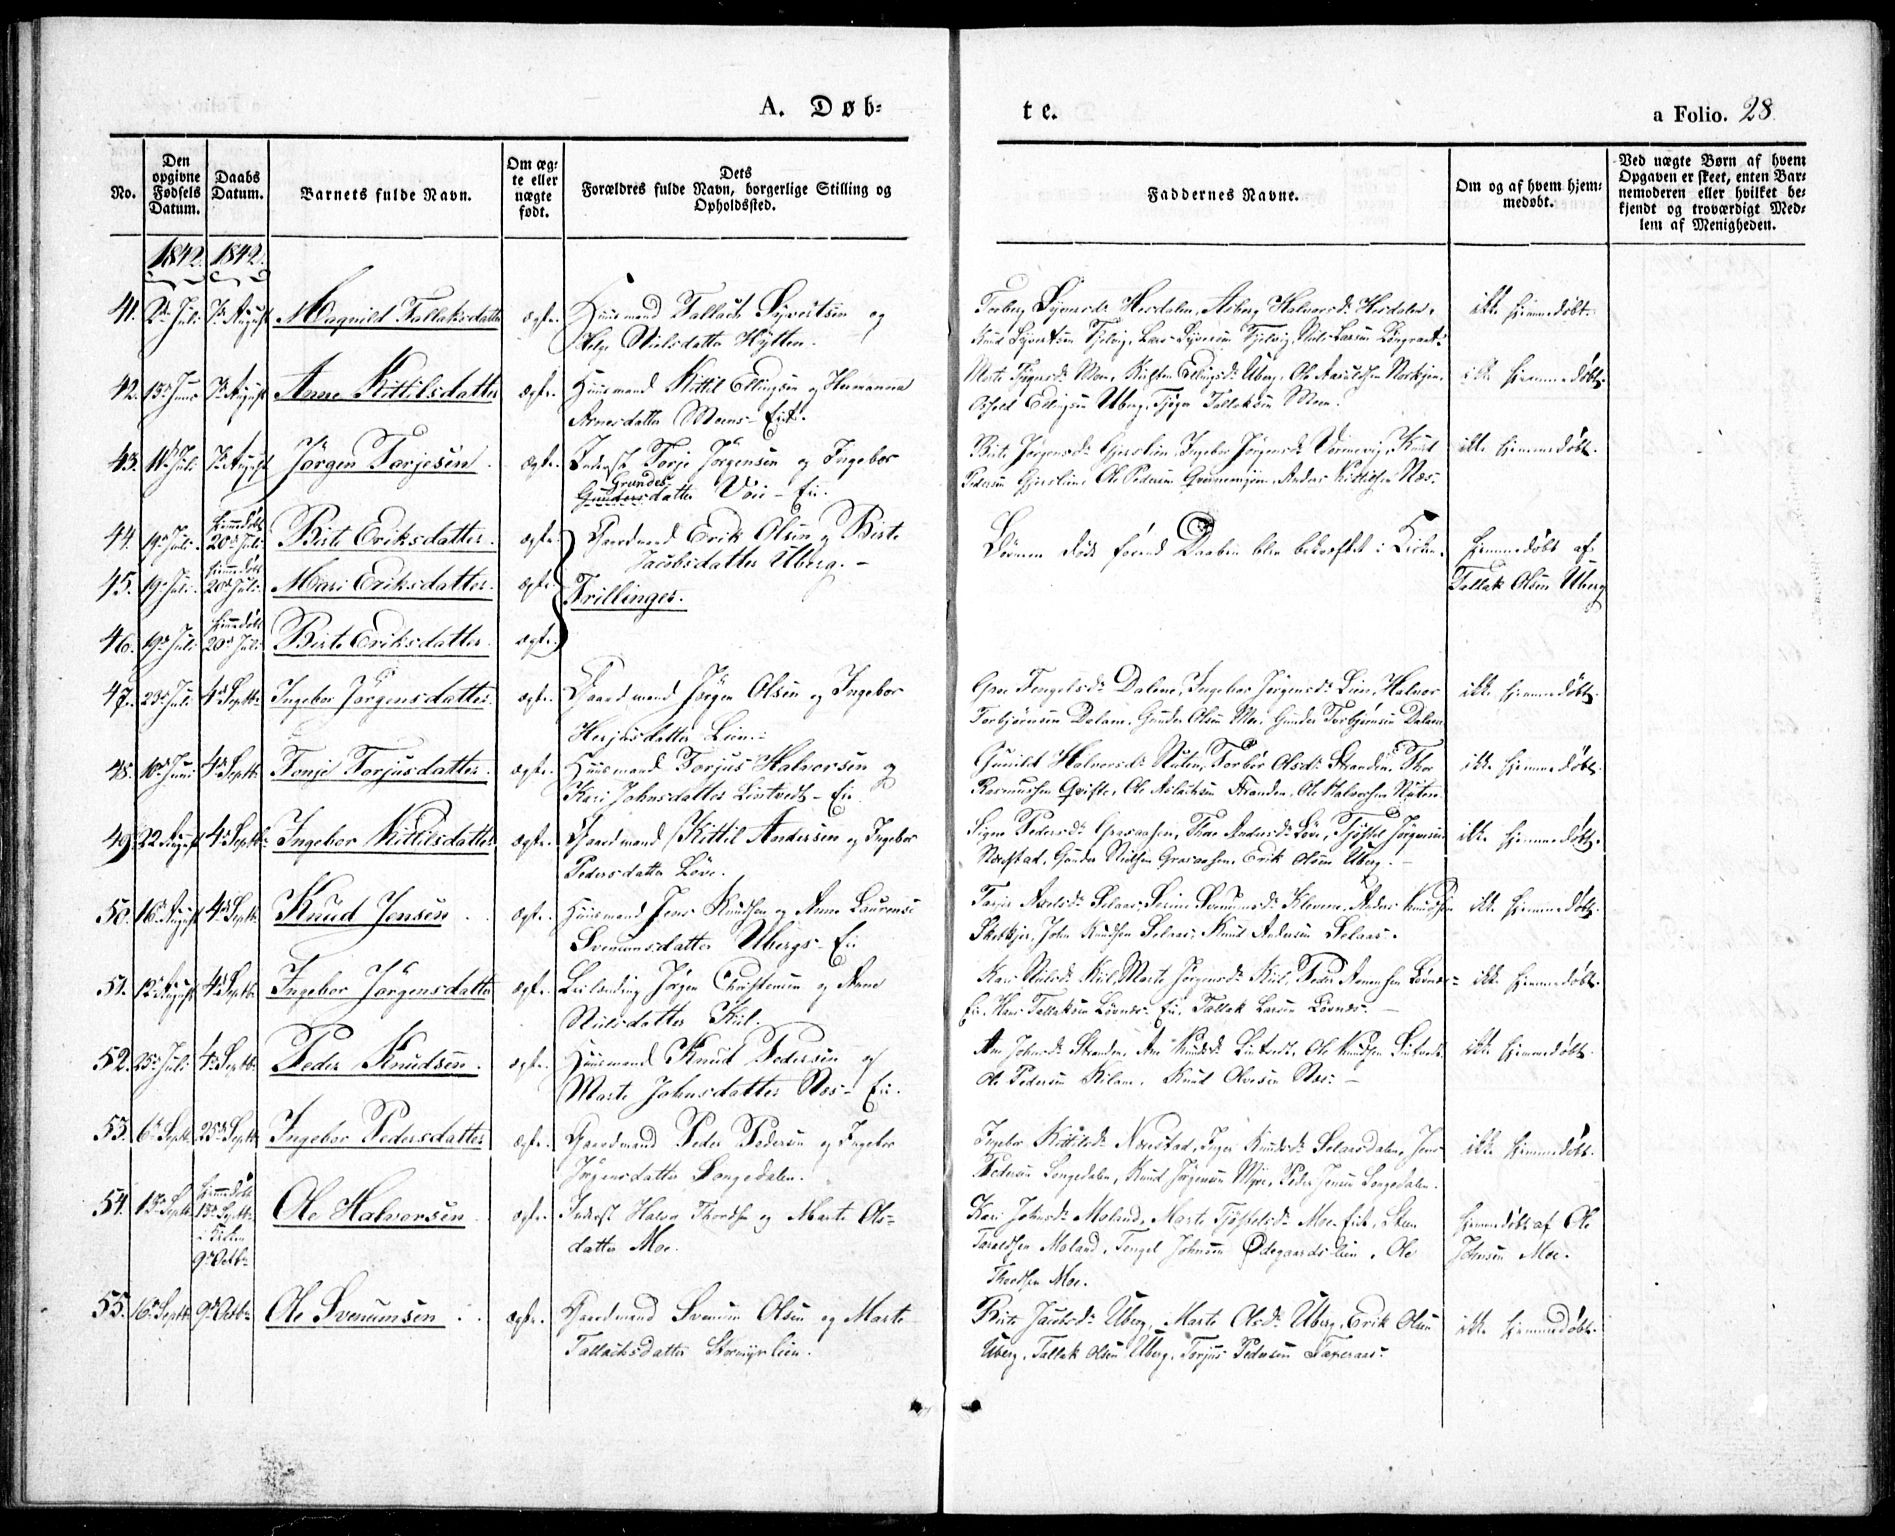 A. Døb=
te.
a Folio. 28
No.
Den opgivne Fødsels Datum.
Daabs Datum.
Barnets fulde Navn.
Om æg=
te eller
nægte
født.
Dets
Forældres fulde Navn, borgerlige Stilling og
Opholdssted.
Faddernes Navne.
Om og af hvem hjem=
medøbt.
Ved nægte Børn af hvem
Opgaven er skeet, enten Bar=
nemoderen eller hvilket be=
kjendt og troværdigt Med=
lem af Menigheden.
1842. 1842.
41. 2d Juli 7d August Magnild Tallaksdatter ægte. Huusmand Tallak Syvertsen og
Nielsdatter Hytten.
Torberg Hesdalen, Asberg Halvorsd: Hesdalen,
Knud Syvertsen Lars Syversen Niels Larsen
ikke hjemmedøbt.
42. 13d Juni 7d August Anne Kittilsdatter ægte. Huusmand Kittil Ellingsen og
Arnesdatter Moens-Eie.
Marte Moen, Kirsten Ellingsd: Uberg, Ole
Ellingsen Uberg, Tallaksen Moen.
ikke hjemmedøbt.
43. 11d Juli 7d August Jörgen Torjesen. ægte. Inderst Torje Jörgensen og Ingebor
Grundes
datter Voie-Eie.
Birte Jørgensd: Gjerslien, Ingebor Jørgensd: Knud
Pedersen Gjerslien, Ole Pedersen Anders Kittilsen Næs.
ikke hjemmedøbt.
44. 19d Juli. hjemmedøbt 20d Juli Birte Eriksdatter. ægte. Gaardmand Erik Olsen og Birte
Jacobsdatter Uberg.-
Börnene døde førend Daaben blev bekræftet i Kirken.
hjemmedøbt af
Tallak Olsen Uberg
45. 19d Juli hjemmedøbt 20d Juli. Mari Eriksdatter. ægte. Trillinger.
46. 19d Juli hjemmedøbt 20d Juli. Birte Eriksdatter. ægte.
47. 23d Juli 4d Septbr Ingebor Jörgensdatter ægte. Gaardmand Jörgen Olsen og Ingebor
Herjusdatter Lien.
Tengelsd: Dalene, Ingebor Jørgensd: Lien, Halvor
Torbjørnsen Dalen, Gunder Olsen Moe, Gunder Torbjørnsen Dalene
ikke hjemmedøbt.
48. 10d Juni 4d Septbr Tonje Torjusdatter. ægte. Huusmand Torjus Halvorsen og
Kari Johnsdatter Lintvedt-Eie.
Gunild Halvorsd: Torbor Olsd: Stranden, Thor
Rasmussen Qvifte, Ole Aslaksen Stranden, Ole Halvorsen
ikke hjemmedøbt.
49. 22 August 4d Septbr Ingebor Kittilsdatter ægte. Gaardmand Kittil Andersen og Ingebor
Pedersdatter Löve.
Signe Pedersd: Graaasen, Andersd: Löve, Tjöstel Jörgensen
Nærstad, Gunder Nielsen Graaasen, Erik Olsen Uberg.
ikke hjemmedøbt.
50. 16d August 4d Septbr Knud Jensen ægte. Huusmand Jens Knudsen og Anne Laurense
Svenumsdatter Ubergs-Eie
Selaas, Svenumsd: Kleven, Anders Knudsen
John Knudsen Selaas, Knud Andersen Selaas.
ikke hjemmedøbt.
51. 12d August 4d Septbr Ingebor Jörgensdatter ægte. Leilænding Jörgen Christensen og Anne
Nielsdatter Kiil.
Kari Nielsd: Kiil, Marte Jørgensd: Kiil, Peder Lövnæs-
Eie, Hans Tallaksen Lövnæs-Eie, Tallak Larsen Lövnæs.
ikke hjemmedøbt.
52. 25d Juli 4d Septbr Peder Knudsen. ægte. Huusmand Knud Pedersen og
Marte Johnsdatter Næs-Eie.
Ane Johnsd: Stranden, Ane Knudsd: Lintvedt, Ole Knudsen Lintvedt,
Ole Pedersen Kilane. Knud Olvesen Næs.-
ikke hjemmedøbt.
53. 6d Septbr 25d Septbr Ingebor Pedersdatter ægte. Gaardmand Peder Pedersen og Ingebor
Jörgensdatter Songedalen.
Ingebor Kittilsd: Nærestad, Inger Knudsd: Selaasdalen, Jens
Pedersen Songedalen, Knud Jörgensen Myre, Peder Jensen Songedalen.
ikke hjemmedøbt.
54. 13d Septbr hjemmedøbt 13d Septbr i Kirken 9d Octbr Ole Halvorsen ægte. Inderst Halvor Thordsen og Marte Ols=
datter Moe.
Kari Johnsd: Moland, Marte Tjöstelsd: Moe-Eie,
Taraldsen Moland, Tengel Johnsen Ødegaardslien, Ole
Thordsen Moe.
hjemmedøbt af Ole
Johnsen Moe.
55. 16d Septbr 9d Octbr Ole Svenumsen ægte. Gaardmand Svenum Olsen og Marte
Tallaksdatter Stormyrlien.
Birte Jacobsd: Uberg, Marte Olsd: Uberg, Erik Olsen
Uberg, Tallak Olsen Uberg, Torjus Pedersen Taxeraas.
ikke hjemmedøbt.